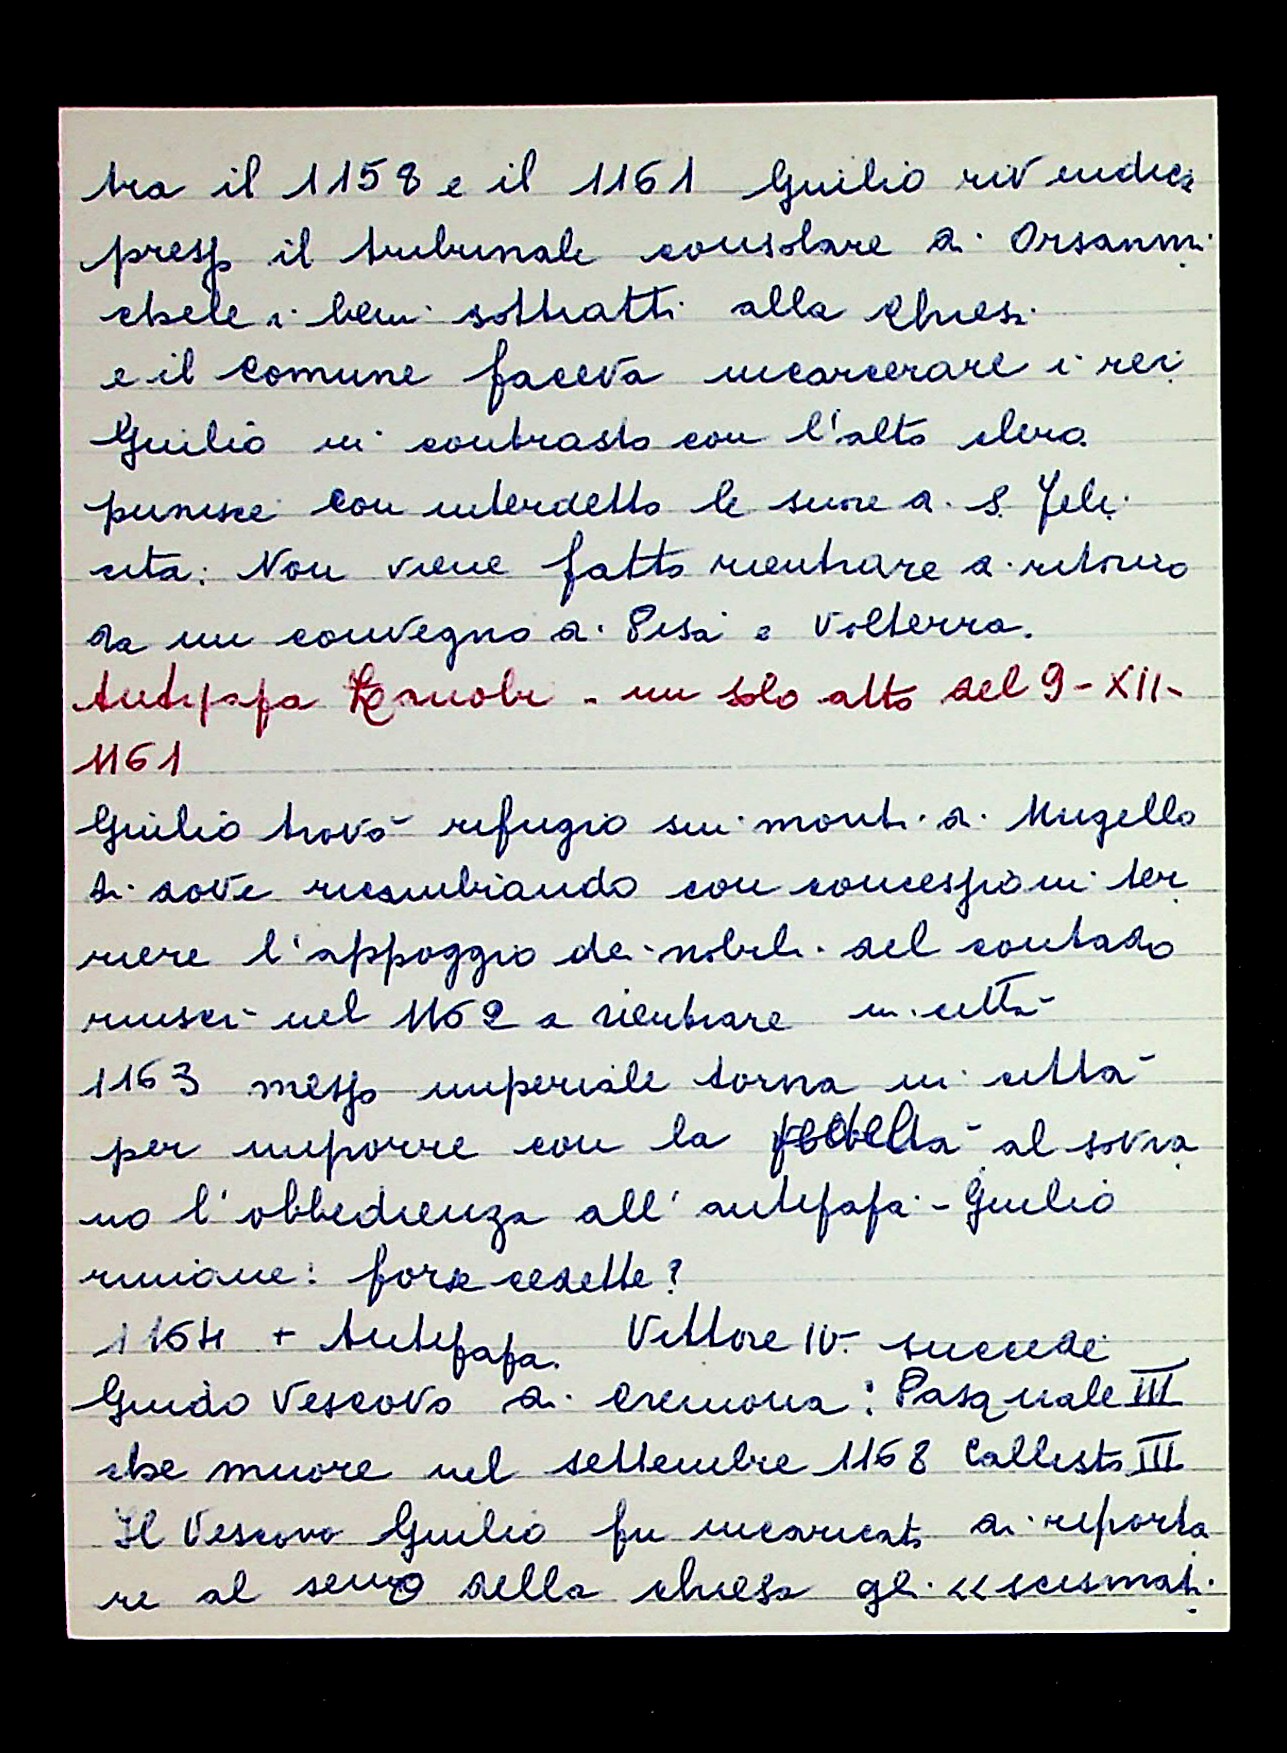 tra il 1158 e il 1161 Giulio rivendica
presso il tribunale consolare di Orsanmi
chele i beni sottratti alla chiesa
e il comune faceva incarcerare i rei
Giulio in contrasto con l'alto clero
punisce con interdetto le suore di S. Feli
cita: Non viene fatto rientrare di ritorno
da un convegno di Pisa e Volterra.
Antipapa - un solo atto del 9-XII-
1161
Giulio trovò rifugio sui monti di Mugello
di dove ricambiando con concessioni ter
riere l'appoggio dei nobili del contado
riuscì nel 1162 a rientrare in città
1163 messo imperiale torna in città
per imporre con la fedeltà al sovra
no l'obbedienza all'antipapa - Giulio
rimane: forse cedette?
1164 + Antipapa. Vittore IV- succede
Guido Vescovo di Cremona: Pasquale III
che muore nel settembre 1168 Callisto III
Il Vescovo Giulio fu incaricato di riporta
re al seno della chiesa gli << scismati